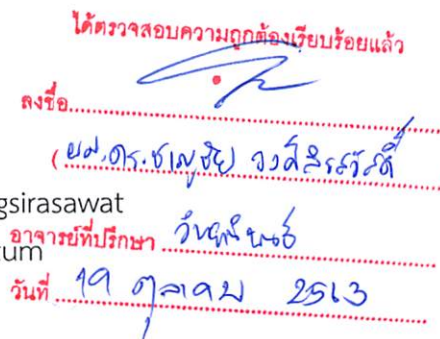 ได้ตรวจสอบความถูกต้องเรียบร้อยแล้ว
ลงชื่อ
(ผศ.ดร.ชาญชัย วงศ์สิรสวัสดิ์
gsirasawat
อาจารย์ที่ปรึกษา วิทยานิพนธ์
tum
วันที่ 19 ตุลาคม 2563